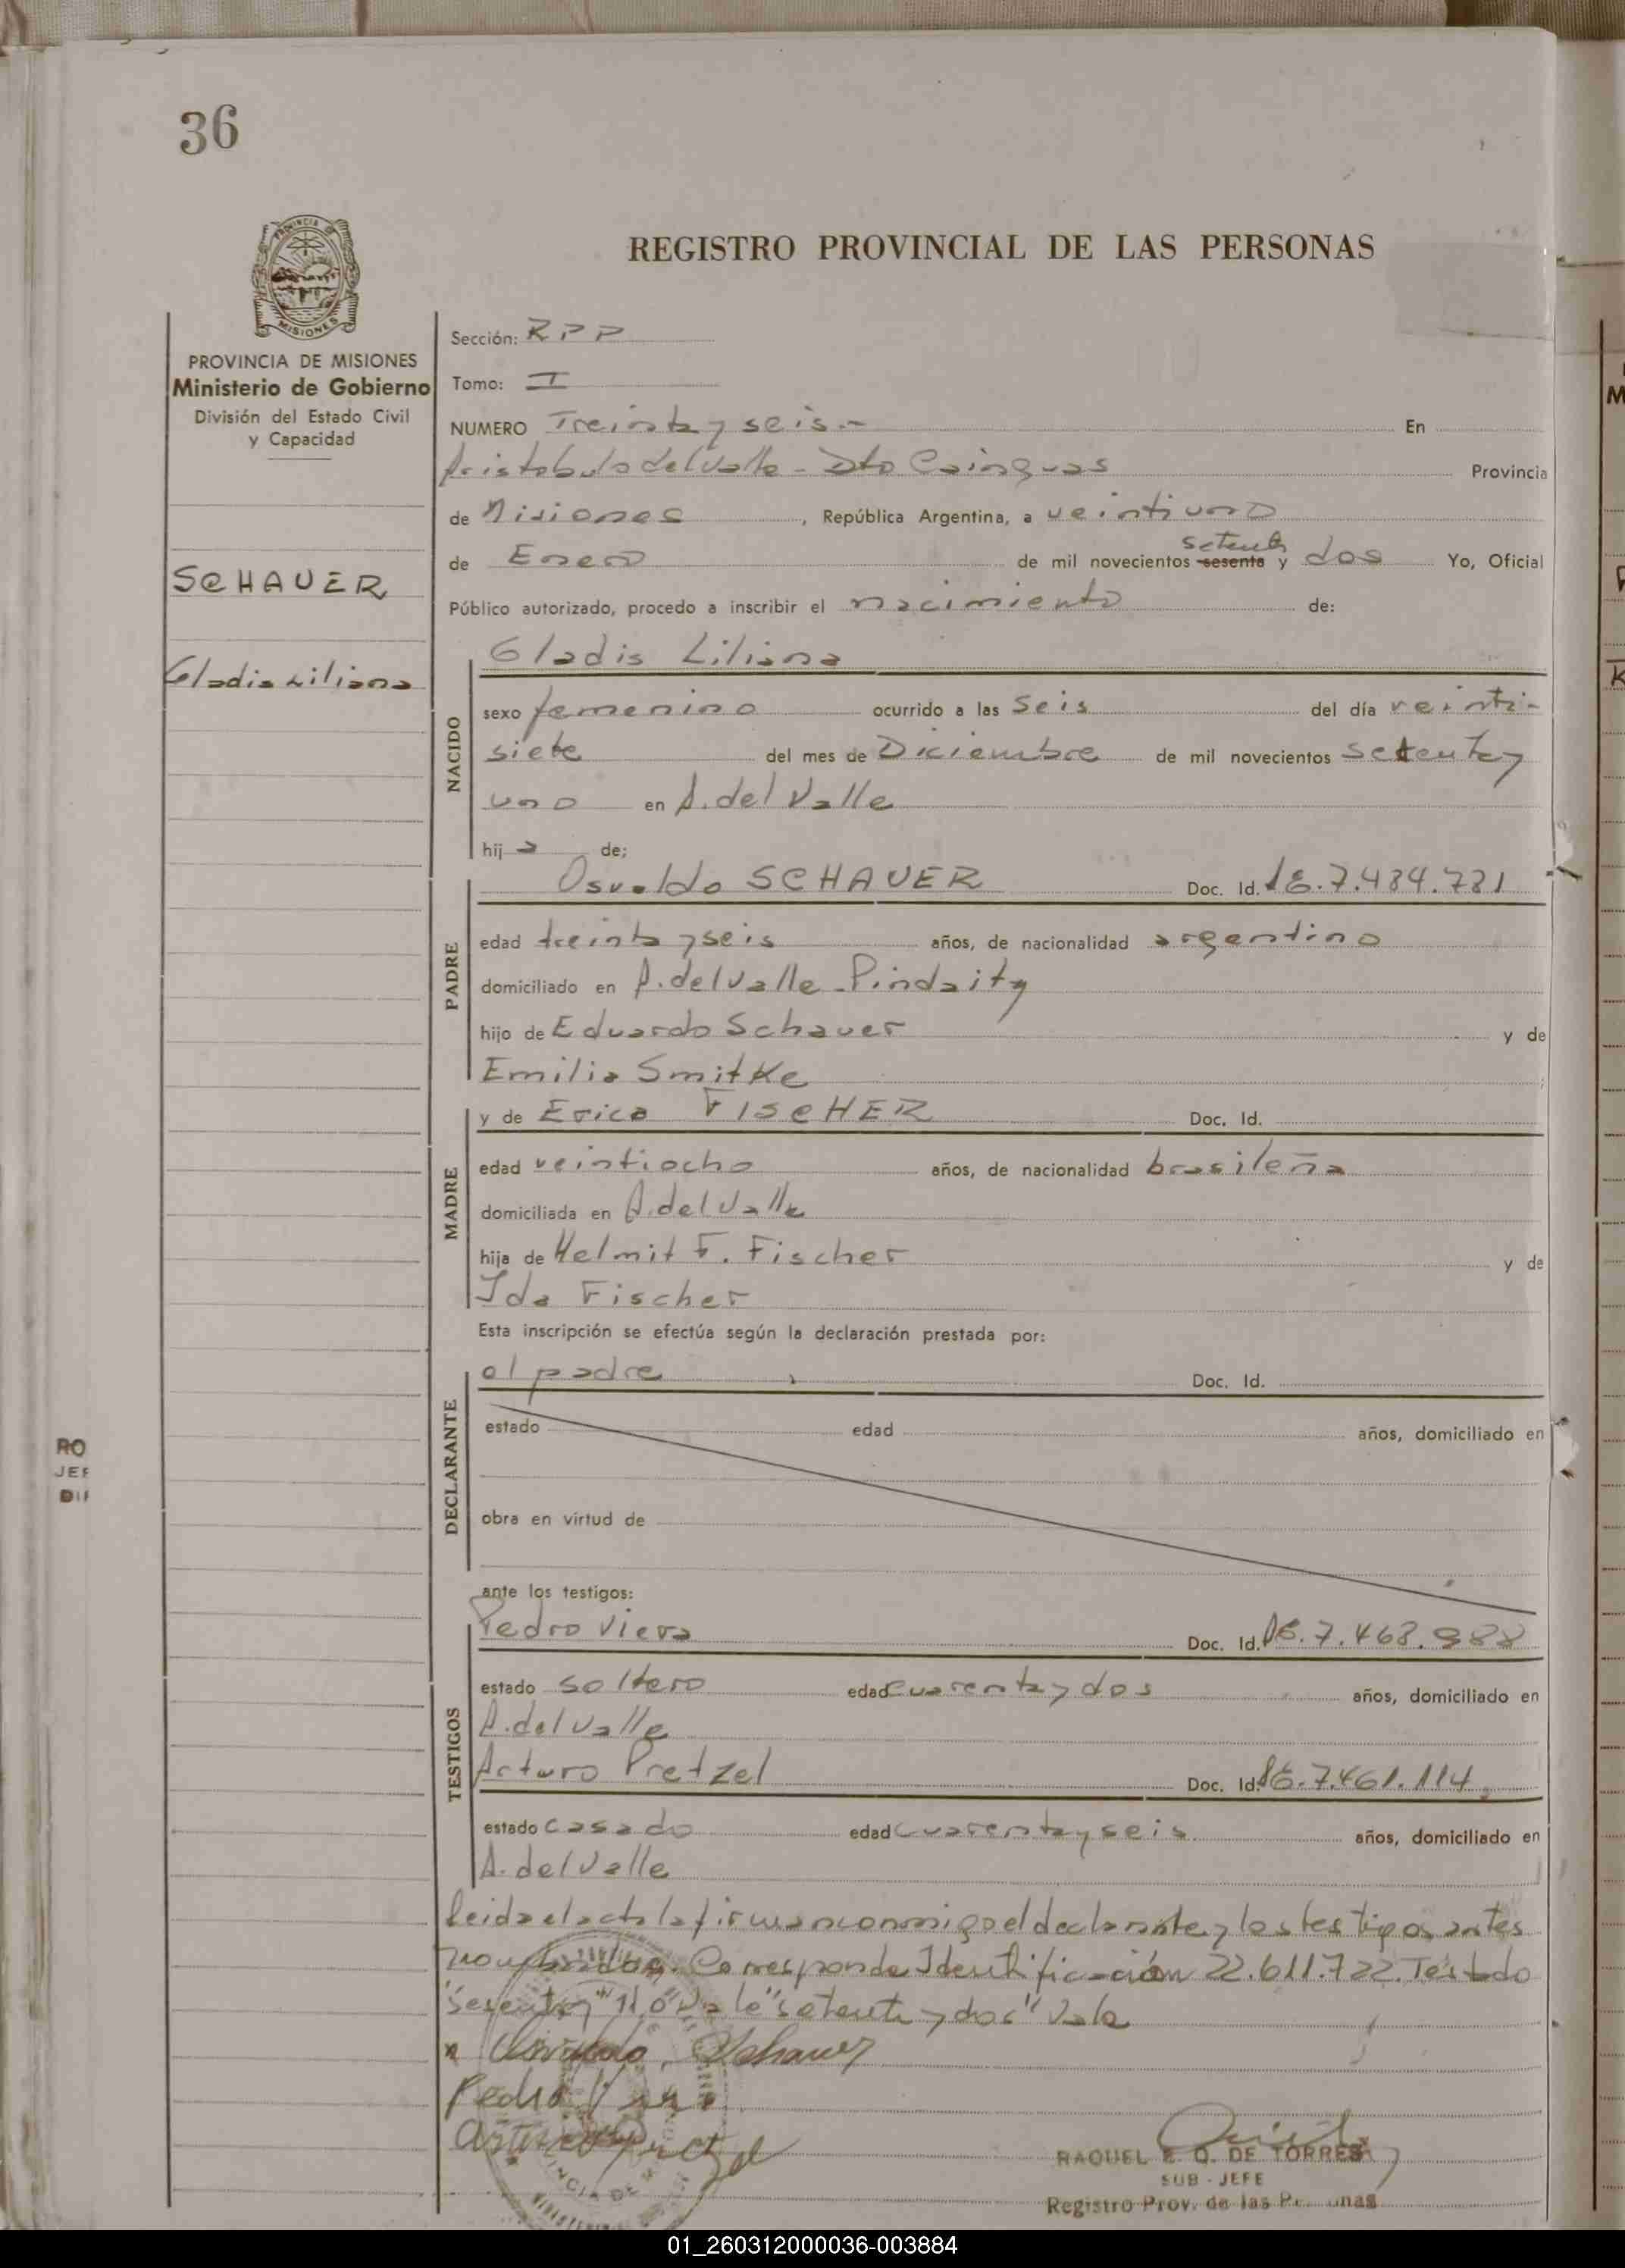 36
REGISTRO PROVINCIAL DE LAS PERSONAS
PROVINCIA DE
MISIONES
PROVINCIA DE MISIONES
Ministerio de Gobierno
División del Estado Civil
y Capacidad
SCHAUER
Gladis Liliana
Sección: RPP
Tomo: I
NUMERO Treinta y seis.- En
Aristobulo del Valle - Dto Cainguas Provincia
de Misiones, República Argentina, a veintiuno
setenta
de Enero de mil novecientos sesenta y dos Yo, Oficial
Público autorizado, procedo a inscribir el nacimiento de:
NACIDO
Gladis Liliana
sexo femenino ocurrido a las seis del día veinti-
siete del mes de Diciembre de mil novecientos setenta y
uno en A. del Valle
hij a de;
PADRE
Osvaldo SCHAUER Doc. Id.
edad treinta y seis años, de nacionalidad argentino
domiciliado en A. del Valle - Pindaity
hijo de Eduardo Schauer y de
Emilia Smitke
MADRE
y de Erica FISCHER Doc. Id.
edad veintiocho años, de nacionalidad brasileña
domiciliada en A. del Valle
hija de Helmit F. Fischer y de
Ida Fischer
Esta inscripción se efectúa según la declaración prestada por:
DECLARANTE
el padre Doc. Id.
estado edad años, domiciliado en
obra en virtud de
ante los testigos:
TESTIGOS
Pedro Viera Doc. Id.
estado soltero edad cuarenta y dos años, domiciliado en
A. del Valle
Arturo Pretzel Doc. Id. 7.461.114
estado casado edad cuarenta y seis años, domiciliado en
A. del Valle
Leida el acta la firman conmigo el declarante y los testigos antes
nombrados. Corresponde Identificación 22.611.722. Testado
"sesenta y" No Vale "setenta y dos" Vale
Osvaldo Schauer
Pedro Viera
Arturo Pretzel
RAQUEL E. O. DE TORRES
SUB - JEFE
Registro Prov. de las
RO
JEF
DI
01_260312000036-003884